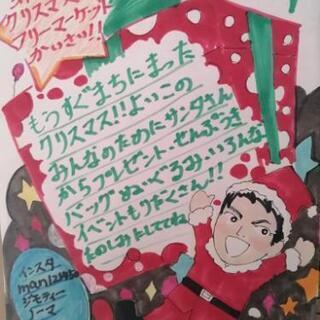 クリスマス
フリーマーケット
かいさい!!
もうすぐまちにまった
クリスマス!!よいこの
みんなのためにサンタさん
からプレゼント・せんぷうき
バッグ・ぬいぐるみ・いろんな
イベントもりだくさん!!
たのしみにしててね
インスタ
ジモティー